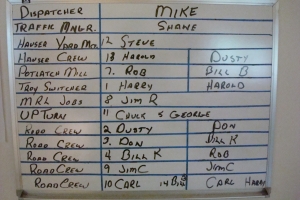 DISPATCHER MIKE
TRAFFIC MNGR. SHANE
HAUSER YARD MGR. 12 STEVE
HAUSER CREW 13 HAROLD DUSTY
POTLATCH MILL 7. ROB BILL B
TROY SWITCHER 1 HARRY HAROLD
MRL JOBS 8 JIM R
UPTURN 11 CHUCK & GEORGE
ROAD CREW 2 DUSTY DON
ROAD CREW 3. DON BILL K
ROAD CREW 4 BILL K ROB
ROAD CREW 9 JIM C JIM C
ROAD CREW 10 CARL 14 CARL HARRY